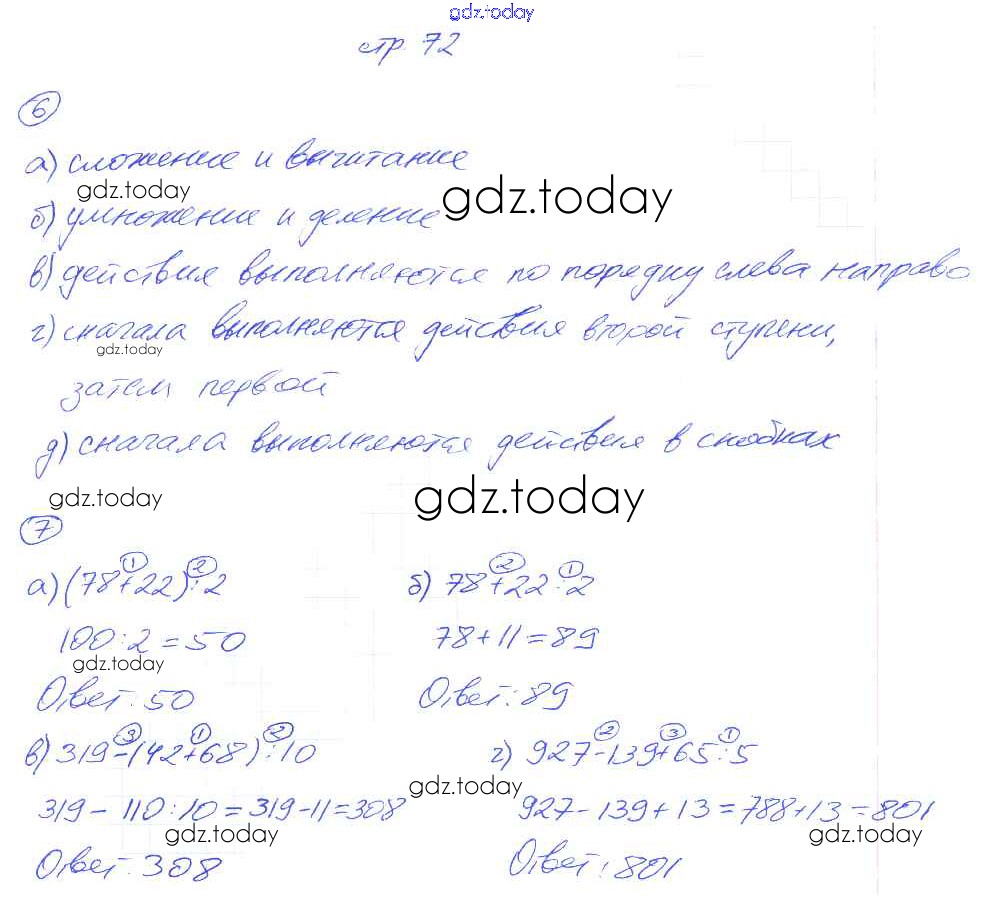 gdz.today
стр. 72
6
а) сложение и вычитание
gdz.today
gdz.today
б) умножение и деление
в) действия выполняются по порядку слева направо
г) сначала выполняются действия второй ступени,
gdz.today
затем первой
д) сначала выполняются действия в скобках
gdz.today
gdz.today
7
1 2 2 1
а) (78+22):2 б) 78+22:2
100:2=50 78+11=89
gdz.today
Ответ: 50 Ответ: 89
3 1 2 2 3 1
в) 319-(42+68):10 г) 927-139+65:5
gdz.today
319-110:10=319-11=308 927-139+13=788+13=801
gdz.today gdz.today
Ответ: 308 Ответ: 801